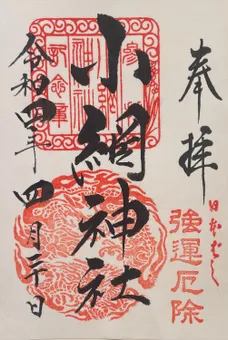 奉拝
日本ばし
強運厄除
小網神社
令和四年四月三十日